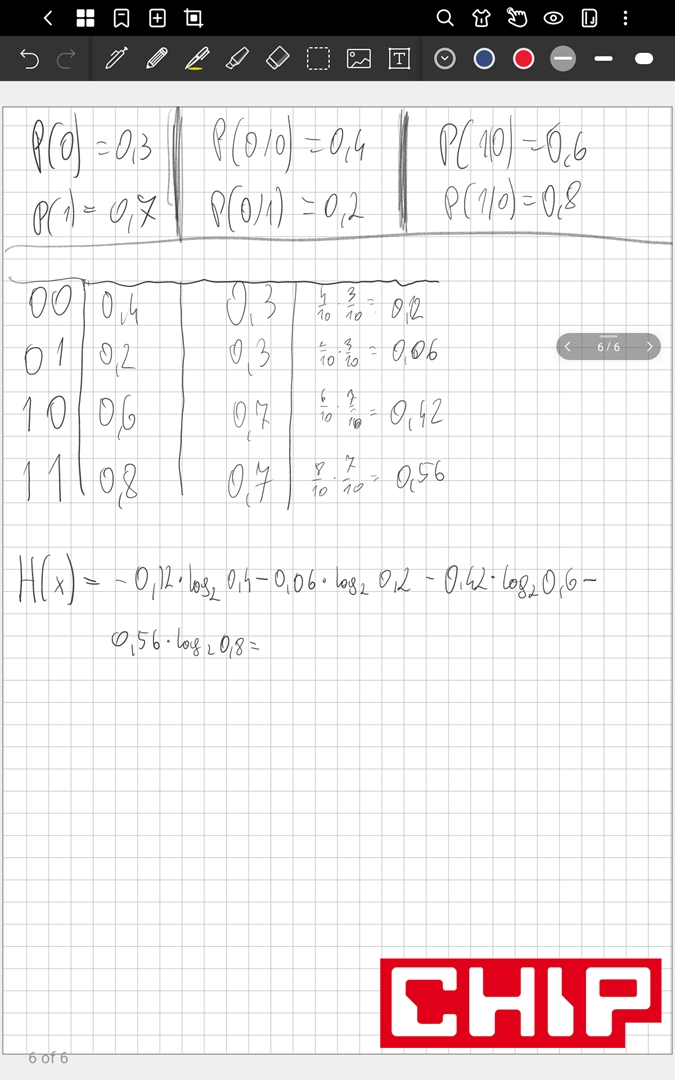 P(0) = 0,3
P(1) = 0,7
P(0/0) = 0,4
P(0/1) = 0,2
P(1/0) = 0,6
P(1/0) = 0,8
6/6
00 0,4 0,3 4/10 · 3/10 = 0,12
01 0,2 0,3 2/10 · 3/10 = 0,06
10 0,6 0,7 6/10 · 7/10 = 0,42
11 0,8 0,7 8/10 · 7/10 = 0,56
H(x) = - 0,12 · log₂ 0,4 - 0,06 · log₂ 0,2 - 0,42 · log₂ 0,6 -
0,56 · log₂ 0,8 =
CHIP
6 of 6